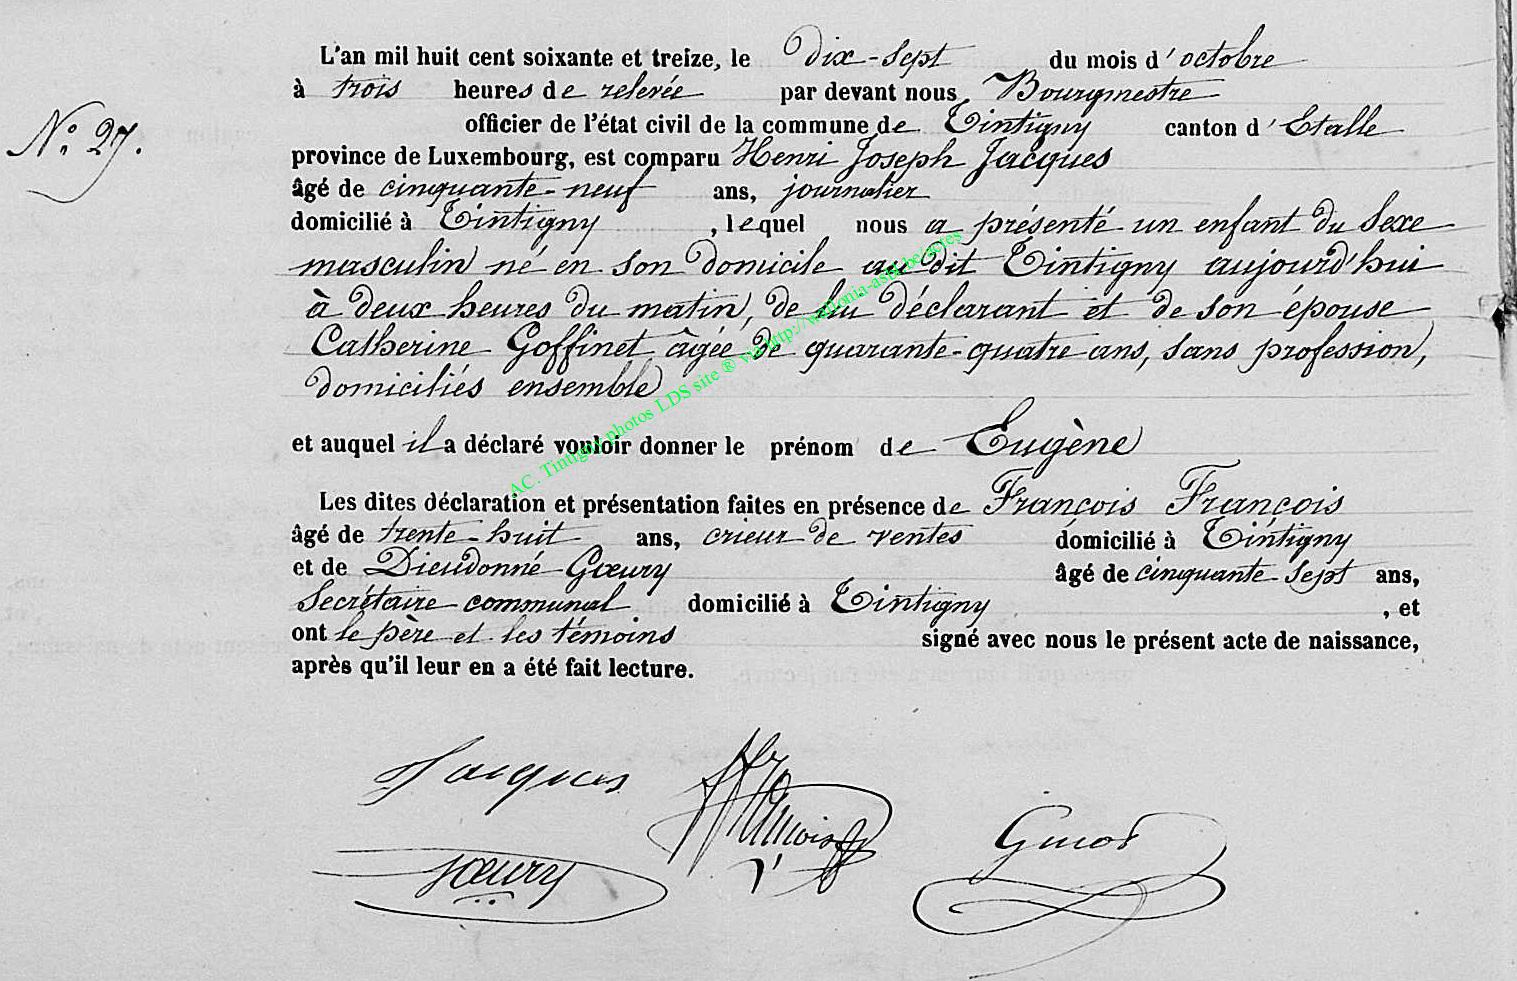 L'an mil huit cent soixante et treize, le dix-sept du mois d'octobre
à trois heures de relevée par devant nous Bourgmestre
N.° 27.
officier de l'état civil de la commune de Tintigny canton d'Etalle
province de Luxembourg, est comparu Henri Joseph Jacques
âgé de cinquante-neuf ans, journalier
domicilié à Tintigny, lequel nous a présenté un enfant du sexe
masculin né en son domicile au dit Tintigny aujourd'hui
à deux heures du matin, de lui déclarant et de son épouse
Catherine Goffinet, âgée de quarante-quatre ans, sans profession,
domiciliés ensemble
et auquel il a déclaré vouloir donner le prénom de Eugène
Les dites déclaration et présentation faites en présence de François François
âgé de trente-huit ans, crieur de ventes domicilié à Tintigny
et de Dieudonné Gœury âgé de cinquante-sept ans,
Secrétaire communal domicilié à Tintigny, et
ont le père et les témoins signé avec nous le présent acte de naissance,
après qu'il leur en a été fait lecture.
Jacques
François
Gœury
AC. Tintigny photos LDS site ® via http://wallonia-asbl.be/actes